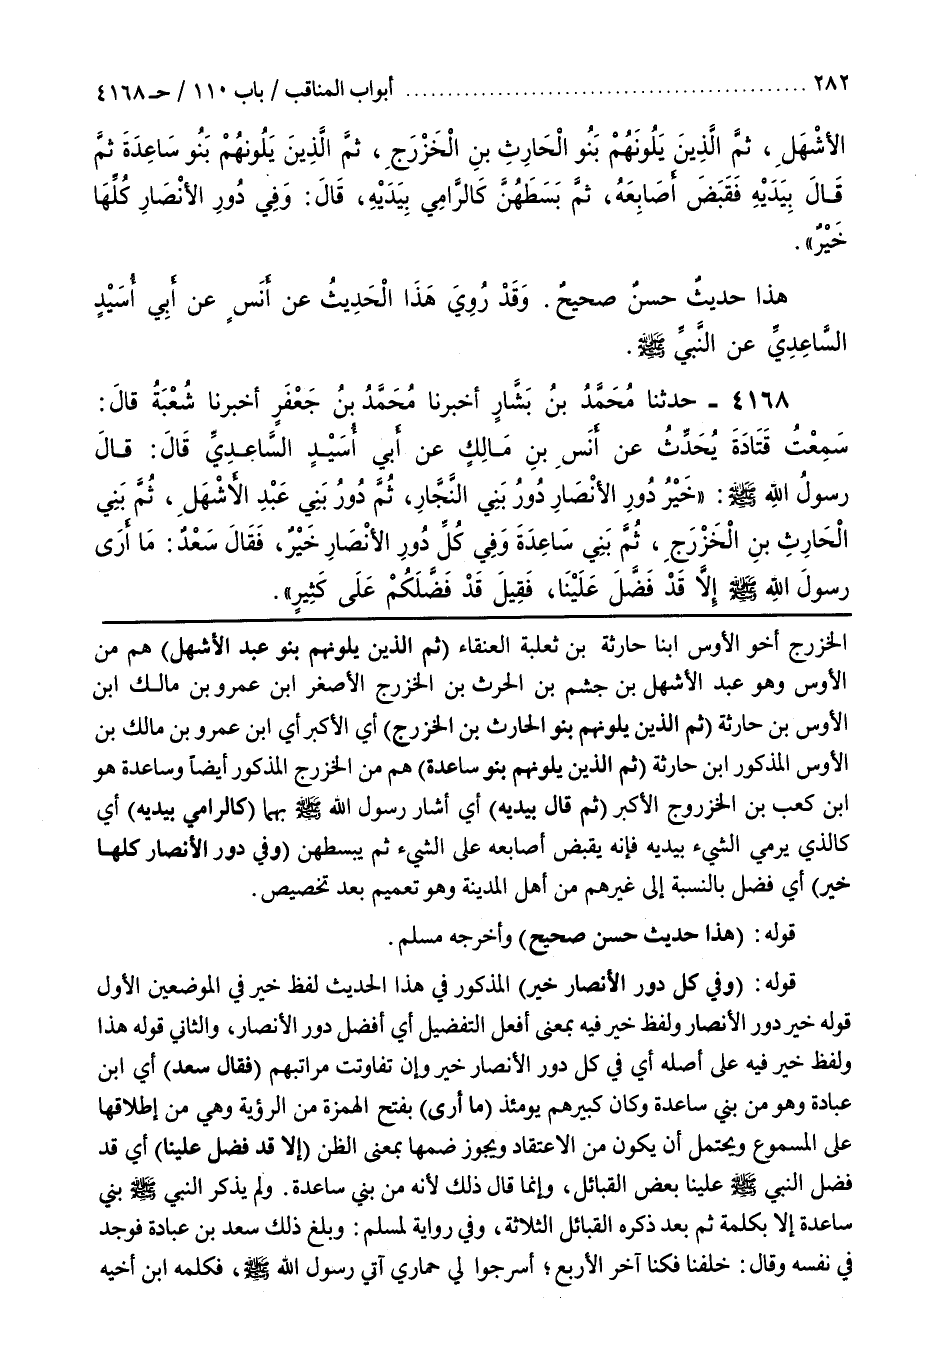 ٢٨٢ ................................................ أبواب المناقب / باب ١١٠ / حـ ٤١٦٨
الأشْهَلِ، ثمَّ الَّذِينَ يَلُونَهُمْ بَنُو الْحَارِثِ بنِ الْخَزْرَجِ، ثمَّ الَّذِينَ يَلُونهُمْ بَنُو سَاعِدَةَ ثمَّ
قَـالَ بِيَدَيْهِ فَقَبَضَ أصَابعَهُ، ثمَّ بَسَطَهُنَّ كَالرَّامِي بِيَدَيْهِ، قَالَ: وَفِي دُورِ الأنْصَارِ كُلِّهَا
خَيْرٌ».
هذا حديثٌ حسنٌ صحيحٌ. وَقَدْ رُوِيَ هَذَا الْحَدِيثُ عن أنَسٍ عن أَبِي أُسَيْدٍ
السَّاعِدِيِّ عن النَّبيِّ ﷺ.
٤١٦٨ ـ حدثنا مُحَمَّدُ بنُ بَشَّارٍ أخبرنا مُحَمَّدُ بنُ جَعْفَرٍ أخبرنا شُعْبَةُ قالَ:
سَمِعْتُ قَتَادَةَ يُحَدِّثُ عن أنَسِ بنِ مَـالِكٍ عن أبي أُسَيْـدٍ السَّاعِـدِيِّ قَالَ: قـالَ
رسولُ اللهِ ﷺ: «خَيْرُ دُورِ الأنْصَارِ دُورُ بَنِي النَّجَّارِ، ثُمَّ دُورُ بَنِي عَبْدِ الأَشْهَلِ، ثُمَّ بَنِي
الْحَارِثِ بنِ الْخَزْرَجِ، ثُمَّ بَنِي سَاعِدَةَ وَفِي كُلِّ دُورِ الأنْصَارِ خَيْرٌ، فَقَالَ سَعْدٌ: مَا أَرَى
رسولَ اللهِ ﷺ إِلَّا قَدْ فَضَّلَ عَلَيْنَا، فَقِيلَ قَدْ فَضَّلَكُمْ عَلَى كَثِيرٍ».
الخزرج أخو الأوس ابنا حارثة بن ثعلبة العنقاء (ثم الذين يلونهم بنو عبد الأشهل) هم من
الأوس وهو عبد الأشهل بن جشم بن الحرث بن الخزرج الأصغر ابن عمرو بن مالـك ابن
الأوس بن حارثة (ثم الذين يلونهم بنو الحارث بن الخزرج) أي الأكبر أي ابن عمرو بن مالك بن
الأوس المذكور ابن حارثة (ثم الذين يلونهم بنو ساعدة) هم من الخزرج المذكور أيضاً وساعدة هو
ابن كعب بن الخزروج الأكبر (ثم قال بيديه) أي أشار رسول الله ﷺ بهما (كالرامي بيديه) أي
كالذي يرمي الشيء بيديه فإنه يقبض أصابعه على الشيء ثم يبسطهن (وفي دور الأنصار كلهـا
خير) أي فضل بالنسبة إلى غيرهم من أهل المدينة وهو تعميم بعد تخصيص.
قوله: (هذا حديث حسن صحيح) وأخرجه مسلم.
قوله: (وفي كل دور الأنصار خير) المذكور في هذا الحديث لفظ خير في الموضعين الأول
قوله خير دور الأنصار ولفظ خير فيه بمعنى أفعل التفضيل أي أفضل دور الأنصار، والثاني قوله هذا
ولفظ خير فيه على أصله أي في كل دور الأنصار خير وإن تفاوتت مراتبهم (فقال سعد) أي ابن
عبادة وهو من بني ساعدة وكان كبيرهم يومئذ (ما أرى) بفتح الهمزة من الرؤية وهي من إطلاقها
على المسموع ويحتمل أن يكون من الاعتقاد ويجوز ضمها بمعنى الظن (إلا قد فضل علينا) أي قد
فضل النبي ﷺ علينا بعض القبائل، وإنما قال ذلك لأنه من بني ساعدة. ولم يذكر النبي ﷺ بني
ساعدة إلا بكلمة ثم بعد ذكره القبائل الثلاثة، وفي رواية لمسلم: وبلغ ذلك سعد بن عبادة فوجد
في نفسه وقال: خلفنا فكنا آخر الأربع؛ أسرجوا لي حماري آتي رسول الله ﷺ، فكلمه ابن أخيه